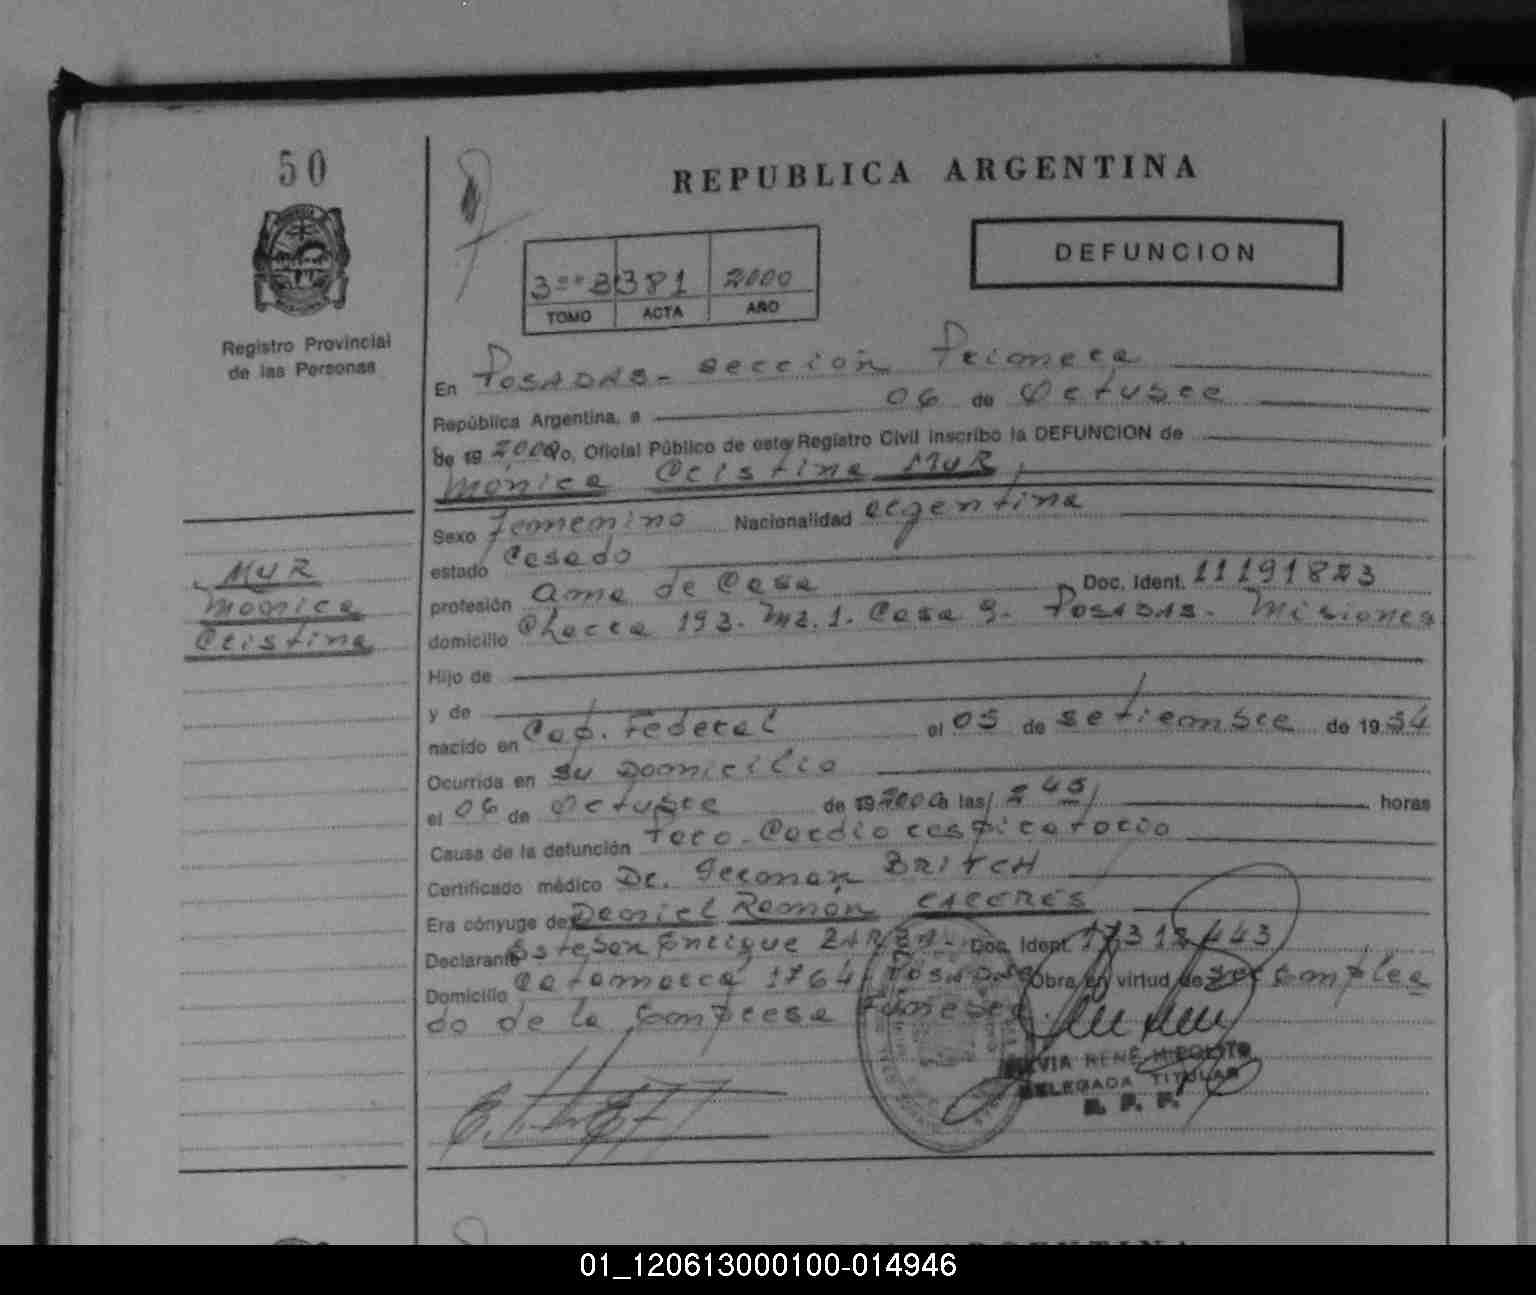 50
REPUBLICA ARGENTINA
DEFUNCION
381 2000
TOMO ACTA AÑO
Registro Provincial
de las Personas
En POSADAS - sección Primera
República Argentina, a 06 de Octubre
de 19 2000 yo, Oficial Público de este Registro Civil inscribo la DEFUNCION de
Mónica Cristina MUR
Sexo femenino Nacionalidad argentina
estado Casado
profesión ama de Casa Doc. Ident. 11191823
domicilio Chacra 193. Mz. 1. Casa 9. POSADAS. Misiones
MUR
Monica
Cristina
Hijo de
y de
nacido en Cap. Federal el 05 de setiembre de 19 54
Ocurrida en su Domicilio
el 06 de Octubre de 19 2000 a las horas
Causa de la defunción Paro Cardio respiratorio
Certificado médico Dr. German BRITCH
Era cónyuge de Daniel Ramón CACERES
Declarante Esteban Enrique ZARZA - Doc. Ident. 17312443
Domicilio Catamarca 1764 POSADAS Obra en virtud de ser emplea
do de la Empresa Funebre.
SILVIA RENÉ HIPOLITO
DELEGADA TITULAR
R. P. P.
01_120613000100-014946